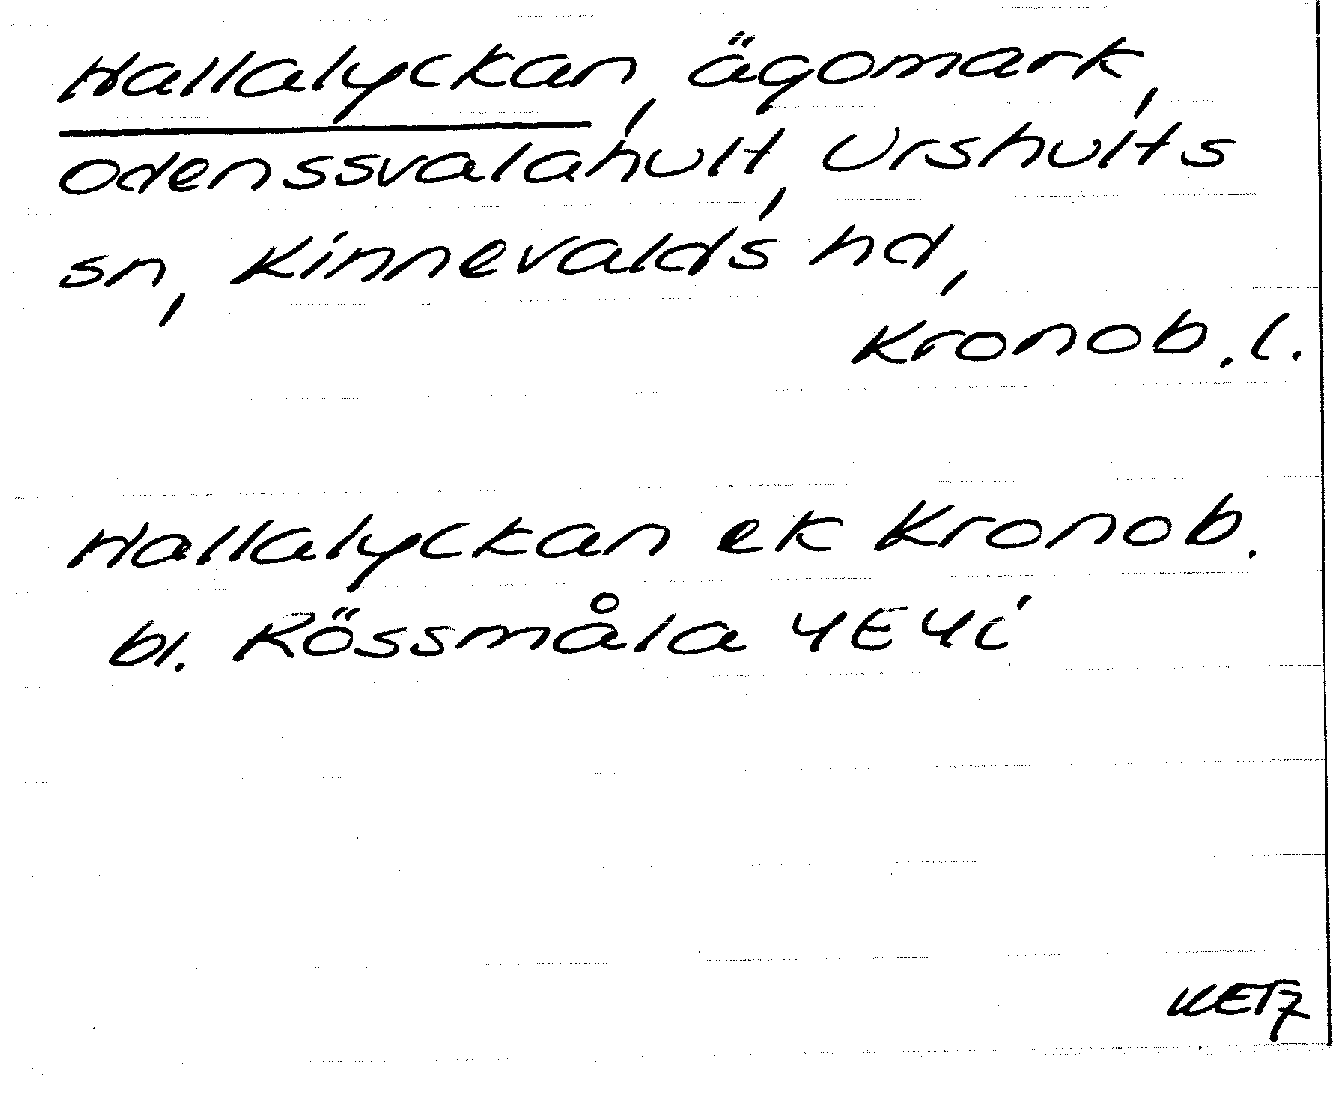 Hallalyckan, ägomark,
Odenssvalahult, Urshults
sn, Kinnevalds hd,
Kronob. l.
Hallalyckan ek Kronob.
bl. Rössmåla 4E4i